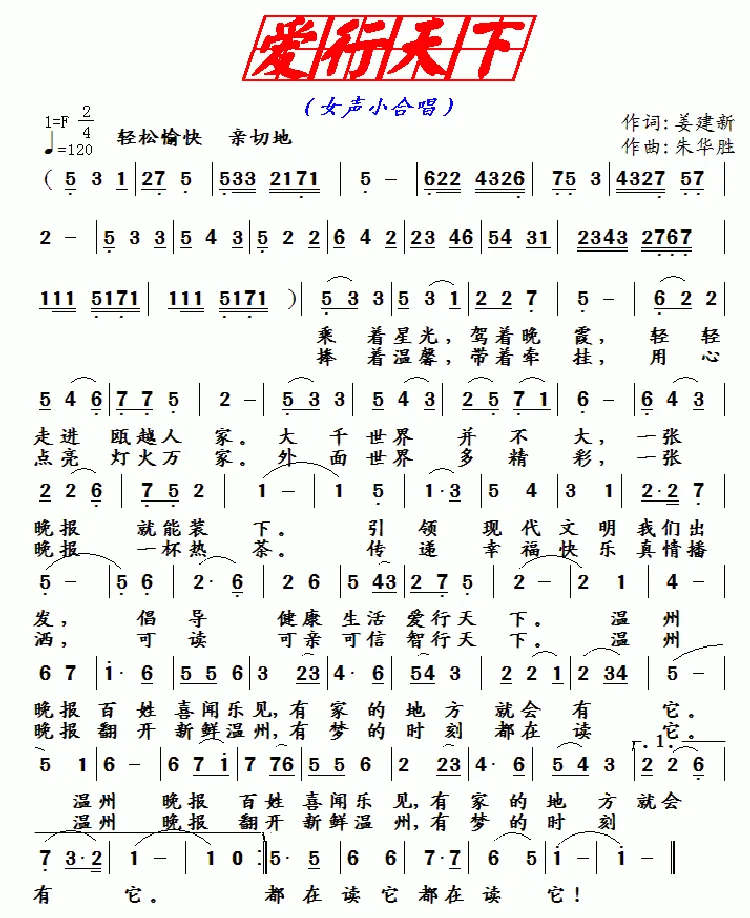 爱行天下
（女声小合唱）
1=F 2/4
♩=120 轻松愉快 亲切地
作词:姜建新
作曲:朱华胜
( 5 3 1 | 27 5 | 533 2171 | 5 – | 622 4326 | 75 3 | 4327 57 |
2 – | 5 3 3 | 5 4 3 | 5 2 2 | 6 4 2 | 23 46 | 54 31 | 2343 2767 |
111 5171 | 111 5171 ) | 5 3 3 | 5 3 1 | 2 2 7 | 5 – | 6 2 2 |
乘 着星光,驾着晚 霞, 轻 轻
捧 着温馨,带着牵 挂, 用 心
5 4 6 | 7 7 5 | 2 – | 5 3 3 | 5 4 3 | 2 5 7 1 | 6 – | 6 4 3 |
走进 瓯越人 家。大 千世界 并 不 大, 一张
点亮 灯火万 家。外 面世界 多 精 彩, 一张
2 2 6 | 7 5 2 | 1 – | 1 5 | 1· 3 | 5 4 | 3 1 | 2· 2 7 |
晚报 就能装 下。 引 领 现代文明我们出
晚报 一杯热 茶。 传 递 幸福快乐真情播
5 – | 5 6 | 2· 6 | 2 6 | 5 43 | 2 7 5 | 2 – | 2 1 | 4 – |
发, 倡 导 健康 生活 爱行天 下。 温 州
洒, 可 读 可亲可信智行天 下。 温 州
6 7 | 1· 6 | 5 5 6 | 3 23 | 4· 6 | 54 3 | 2 2 1 | 2 34 | 5 – |
晚报百姓喜闻乐见,有家的地方就会有 它。
晚报翻开新鲜温州,有梦的时刻都在读 它。
5 1 | 6 – | 6 7 1 | 7 76 | 5 5 6 | 2 23 | 4· 6 | 5 4 3 | 1. 2 2 6 |
温州 晚报 百姓喜闻乐见,有家的地方就会
温州 晚报 翻开新鲜温州,有梦的时刻
7 3· 2 | 1 – | 1 0 :| 5· 5 | 6 6 | 7· 7 | 6 5 | 1 – | 1 – ||
有 它。 都在读它都在读 它!